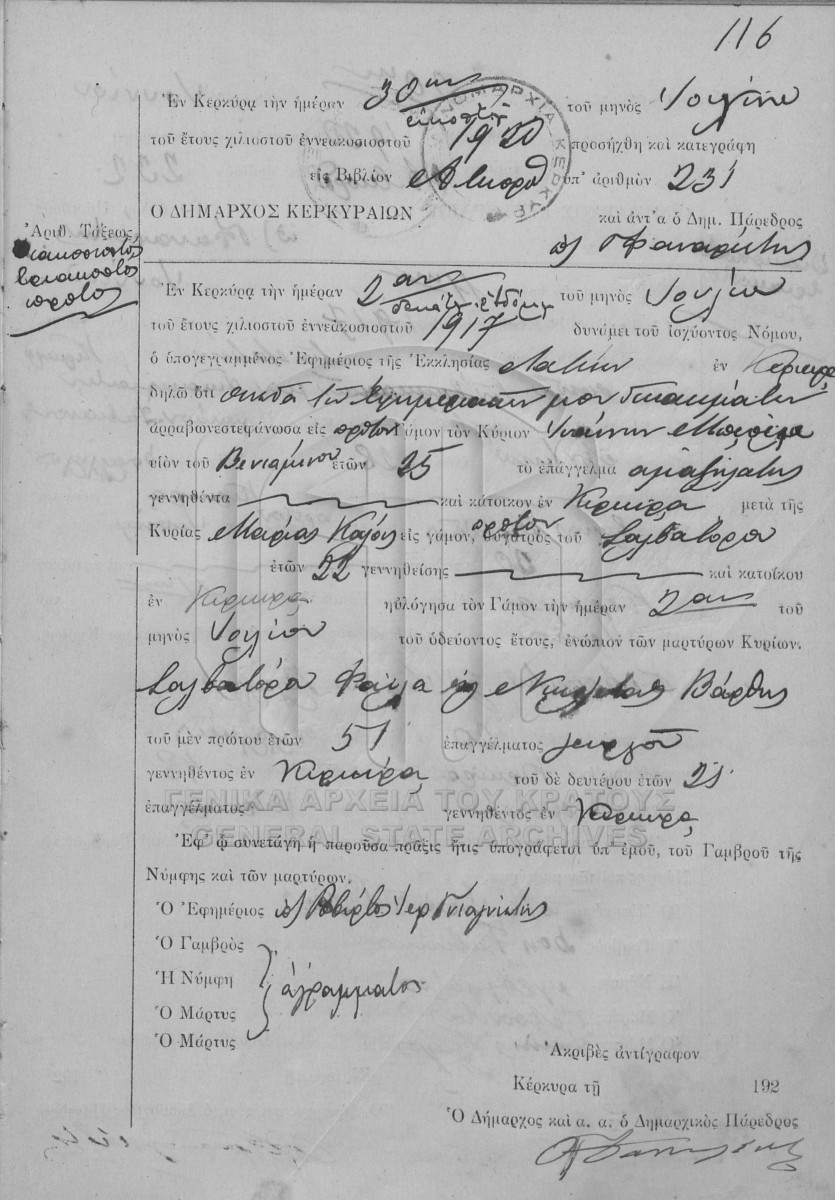 116
Ἐν Κερκύρᾳ τὴν ἡμέραν 30ην τοῦ μηνὸς Ἰουλίου
εἰκοστὸν
τοῦ ἔτους χιλιοστοῦ ἐννεακοσιοστοῦ 1920 προσήχθη καὶ κατεγράφη
εἰς Βιβλίον ὑπ' ἀριθμὸν 231
Ο ΔΗΜΑΡΧΟΣ ΚΕΡΚΥΡΑΙΩΝ καὶ ἀντ'α ὁ Δημ. Πάρεδρος
Ἀριθ. Τάξεως
διακοσιοστὸς
τριακοστὸς
πρῶτος
Ἐν Κερκύρᾳ τὴν ἡμέραν 2αν τοῦ μηνὸς Ἰουλίου
δεκάτου ἑβδόμου
τοῦ ἔτους χιλιοστοῦ ἐννεακοσιοστοῦ 1917 δυνάμει τοῦ ἰσχύοντος Νόμου,
ὁ ὑπογεγραμμένος Ἐφημέριος τῆς Ἐκκλησίας Λατίνων ἐν Κερκύρᾳ
δηλῶ ὅτι ἐφημεριακῶν μου δικαιωμάτων
ἀρραβωνεστεφάνωσα εἰς πρῶτον Γάμον τὸν Κύριον Ἰωάννην
υἱὸν τοῦ Βενιαμὶν ἐτῶν 25 τὸ ἐπάγγελμα ἁμαξηλάτης
γεννηθέντα καὶ κάτοικον ἐν Κερκύρᾳ μετὰ τῆς
Κυρίας Μαρίας εἰς γάμον, πρῶτον θυγατρὸς τοῦ Σαλβατόρου
ἐτῶν 22 γεννηθείσης καὶ κατοίκου
ἐν Κερκύρᾳ ηὐλόγησα τὸν Γάμον τὴν ἡμέραν 2αν τοῦ
μηνὸς Ἰουλίου τοῦ ὁδεύοντος ἔτους, ἐνώπιον τῶν μαρτύρων Κυρίων.
Σαλβατόρου
τοῦ μὲν πρώτου ἐτῶν 51 ἐπαγγέλματος γεωργοῦ
γεννηθέντος ἐν Κερκύρᾳ τοῦ δὲ δευτέρου ἐτῶν 21
ΓΕΝΙΚΑ ΑΡΧΕΙΑ ΤΟΥ ΚΡΑΤΟΥΣ
ἐπαγγέλματος γεννηθέντος ἐν Κερκύρᾳ
GENERAL STATE ARCHIVES
Ἐφ' ᾧ συνετάγη ἡ παροῦσα πρᾶξις ἥτις ὑπογράφεται ὑπ' ἐμοῦ, τοῦ Γαμβροῦ τῆς
Νύμφης καὶ τῶν μαρτύρων.
Ὁ Ἐφημέριος
Ὁ Γαμβρὸς
Ἡ Νύμφη ἀγράμματος
Ὁ Μάρτυς
Ὁ Μάρτυς
Ἀκριβὲς ἀντίγραφον
Κέρκυρα τῇ 192
Ὁ Δήμαρχος καὶ α. α. ὁ Δημαρχικὸς Πάρεδρος